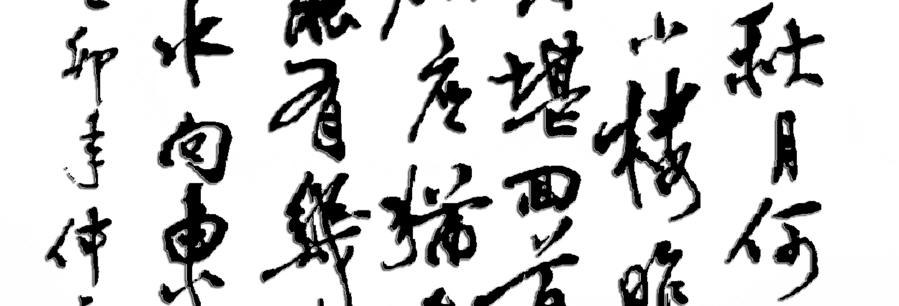 秋月何
小樓昨
堪回首
應猶
能有幾
水向東
卯年仲